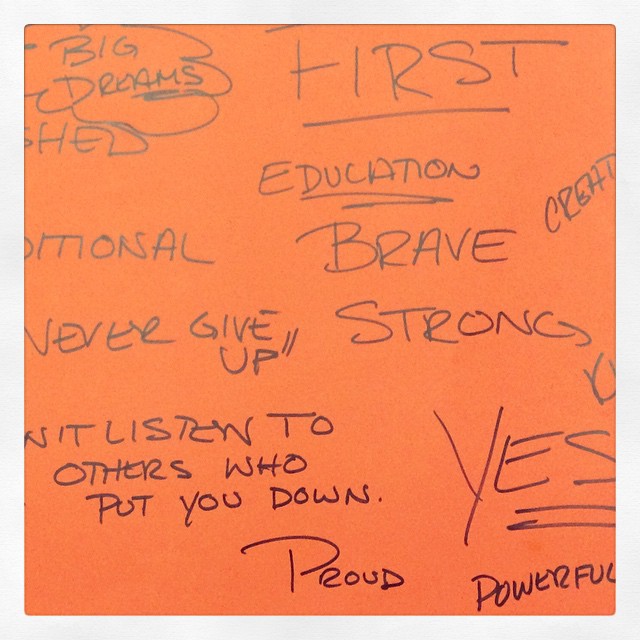 BIG
DREAMS
SHED
FIRST
EDUCATION
CREAT
DITIONAL
BRAVE
NEVER GIVE
UP"
STRONG
N'T LISTEN TO
OTHERS WHO
PUT YOU DOWN.
YES
PROUD
POWERFUL